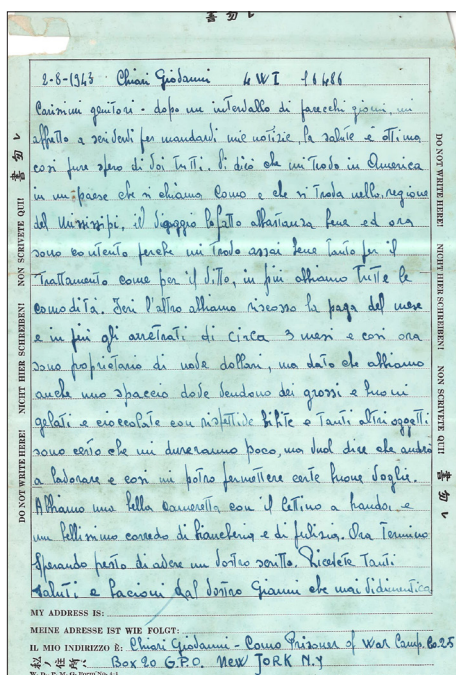 書勿レ
2-8-1943 Chiari Giovanni 4 WI 16486
Carissimi genitori - dopo un intervallo di parecchi giorni, mi
affretto a scrivervi per mandarvi mie notizie, la salute è ottima
così pure spero di voi tutti. Vi dico che mi trovo in America
in un paese che si chiama Como e che si trova nello, regione
del Mississipi, il viaggio lo fatto abbastanza bene ed ora
sono contento perche mi trovo assai bene tanto per il
trattamento come per il vitto, in più abbiamo tutte le
comodità. Ieri l'altro abbiamo riscosso la paga del mese
e in più gli arretrati di circa 3 mesi e così ora
sono proprietario di nove dollari, ma dato che abbiamo
anche uno spaccio dove vendono dei grossi e buoni
gelati e cioccolate con rispettive bibite e tanti altri oggetti
sono certo che mi dureranno poco, ma vuol dire che andrò
a lavorare e così mi potro permettere certe buone voglie.
Abbiamo una bella cameretta con il lettino a branda, e
un bellissimo corredo di biancheria e di pulizia. Ora termino
sperando presto di avere un vostro scritto. Ricevete tanti
saluti e bacioni dal vostro Gianni che mai vi dimentica
DO NOT WRITE HERE! NICHT HIER SCHREIBEN! NON SCRIVETE QUI! 書勿レ
DO NOT WRITE HERE! NICHT HIER SCHREIBEN! NON SCRIVETE QUI! 書勿レ
MY ADDRESS IS:
MEINE ADRESSE IST WIE FOLGT:
IL MIO INDIRIZZO È: Chiari Giovanni - Como Prisoner of War Camp. Co. 25
私ノ住所: Box 20 G.P.O. New York N.Y
W. D., P. M. G. Form No. 4-1